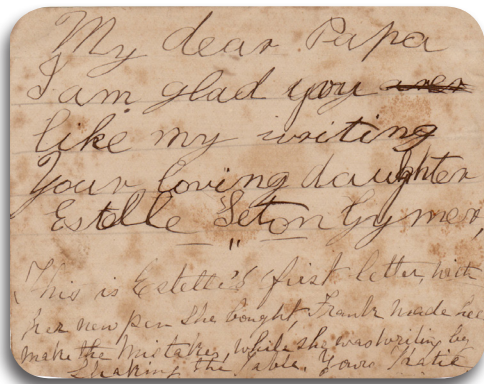 My dear Papa
I am glad you
like my writing
Your loving daughter
Estelle Seton Gymer,
"
This is Estelle's first letter, with
her new pen she bought, Frank made her
make the mistakes, while she was writing by
Shaking the table. Yours Katie